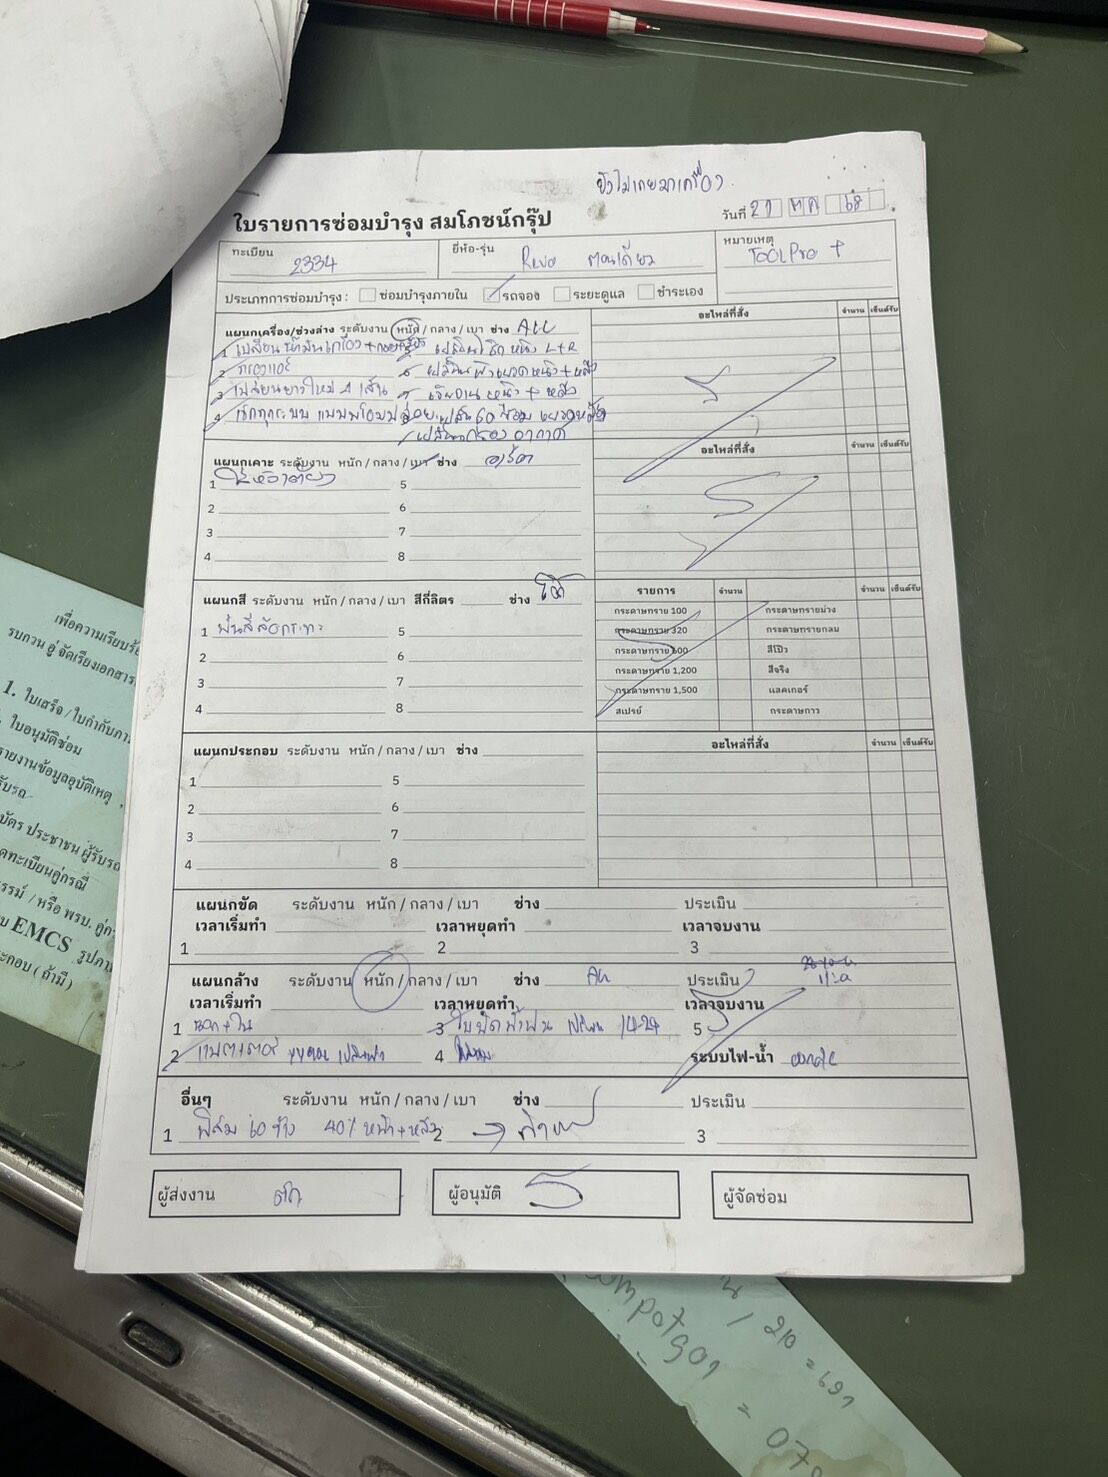 ยังไม่เคยมาเครื่อง
ใบรายการซ่อมบำรุง สมโภชน์กรุ๊ป
วันที่ 21 พค 68
ทะเบียน 2334
ยี่ห้อ-รุ่น Revo ตอนเดียว
หมายเหตุ TOOLPro +
ประเภทการซ่อมบำรุง : ซ่อมบำรุงภายใน รถจอง ระยะดูแล ชำระเอง
แผนกเครื่อง/ช่วงล่าง ระดับงาน หนัก / กลาง / เบา ช่าง All
อะไหล่ที่สั่ง จำนวน เซ็นต์รับ
1 เปลี่ยนน้ำมันเครื่อง + กรองเครื่อง 5 เปลี่ยนโช๊คหน้า L+R
2 6 เปลี่ยนผ้าเบรคหน้า + หลัง
3 เปลี่ยนยางใหม่ 4 เส้น 7 เจียจานหน้า + หลัง
4 เช็กทุกระบบ
เปลี่ยนกรองอากาศ
แผนกเคาะ ระดับงาน หนัก / กลาง / เบา ช่าง
อะไหล่ที่สั่ง จำนวน เซ็นต์รับ
1 5
2 6
3 7
4 8
แผนกสี ระดับงาน หนัก / กลาง / เบา สีกี่ลิตร ช่าง
รายการ จำนวน จำนวน เซ็นต์รับ
1 พ่นสีล้อกระทะ 5
2 6
3 7
4 8
กระดาษทราย 100 กระดาษทรายม่วง
กระดาษทราย 320 กระดาษทรายกลม
กระดาษทราย 600 สีโป๊ว
กระดาษทราย 1,200 สีจริง
กระดาษทราย 1,500 แลคเกอร์
สเปรย์ กระดาษกาว
แผนกประกอบ ระดับงาน หนัก / กลาง / เบา ช่าง
อะไหล่ที่สั่ง จำนวน เซ็นต์รับ
1 5
2 6
3 7
4 8
แผนกขัด ระดับงาน หนัก / กลาง / เบา ช่าง ประเมิน
เวลาเริ่มทำ เวลาหยุดทำ เวลาจบงาน
1 2 3
แผนกล้าง ระดับงาน หนัก / กลาง / เบา ช่าง All ประเมิน
เวลาเริ่มทำ เวลาหยุดทำ เวลาจบงาน
1 นอก+ใน 3 ใบปัดน้ำฝน เปลี่ยน 14-24 5
2 แบตเตอรี่ 4 ระบบไฟ-น้ำ
อื่นๆ ระดับงาน หนัก / กลาง / เบา ช่าง ประเมิน
1 ฟิล์ม 60 ข้าง 40% หน้า+หลัง 2 3
ผู้ส่งงาน
ผู้อนุมัติ
ผู้จัดซ่อม
เพื่อความเรียบร้
รบกวน อู่ จัดเรียงเอกสาร
1. ใบเสร็จ / ใบกำกับภา
ใบอนุมัติซ่อม
รายงานข้อมูลอุบัติเหตุ
รับรถ
บัตร ประชาชน ผู้รับรถ
ดทะเบียนคู่กรณี
รรม์ / หรือ พรบ. คู่ก
บ EMCS รูปภา
ะกอบ ( ถ้ามี )
/ 210 = 691
= 070